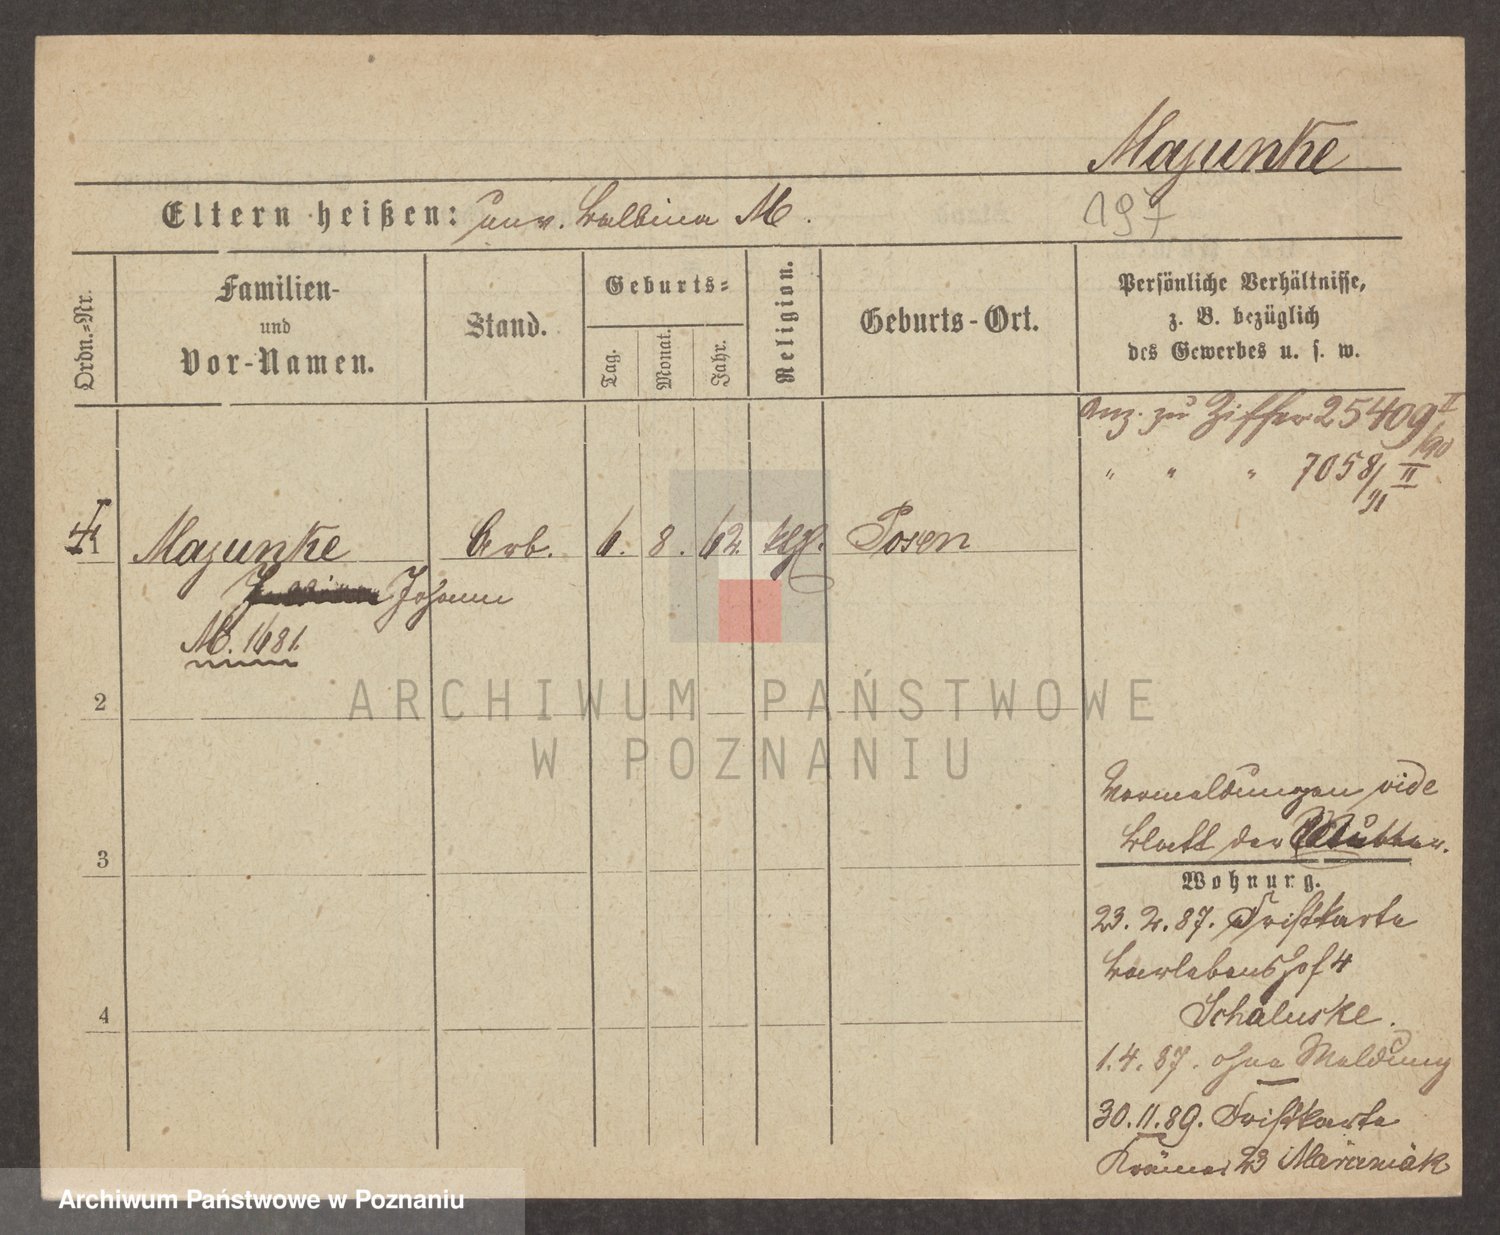 Majunke
Eltern heißen: unv. Balbina M.
197
Ordn.=Nr.
Familien-
und
Vor-Namen.
Stand.
Geburts=
Tag.
Monat.
Jahr.
Religion.
Geburts-Ort.
Persönliche Verhältnisse,
z. B. bezüglich
des Gewerbes u. s. w.
Anz. zu Ziffer 25409 II/90
" " " 7058/II 91
1 Majunke Arb. 6. 8. 62. ktf. Posen
Johann
M. 1681.
2
3
4
Vermeldungen vide
Blatt der Mutter.
Wohnung.
23. 2. 87. Fristkarte
Barlebenshof 4
Schaluske.
1. 4. 87. ohne Meldung
30. 11. 89. Fristkarte
Krämer 23 Marciniak
ARCHIWUM PAŃSTWOWE
W POZNANIU
Archiwum Państwowe w Poznaniu